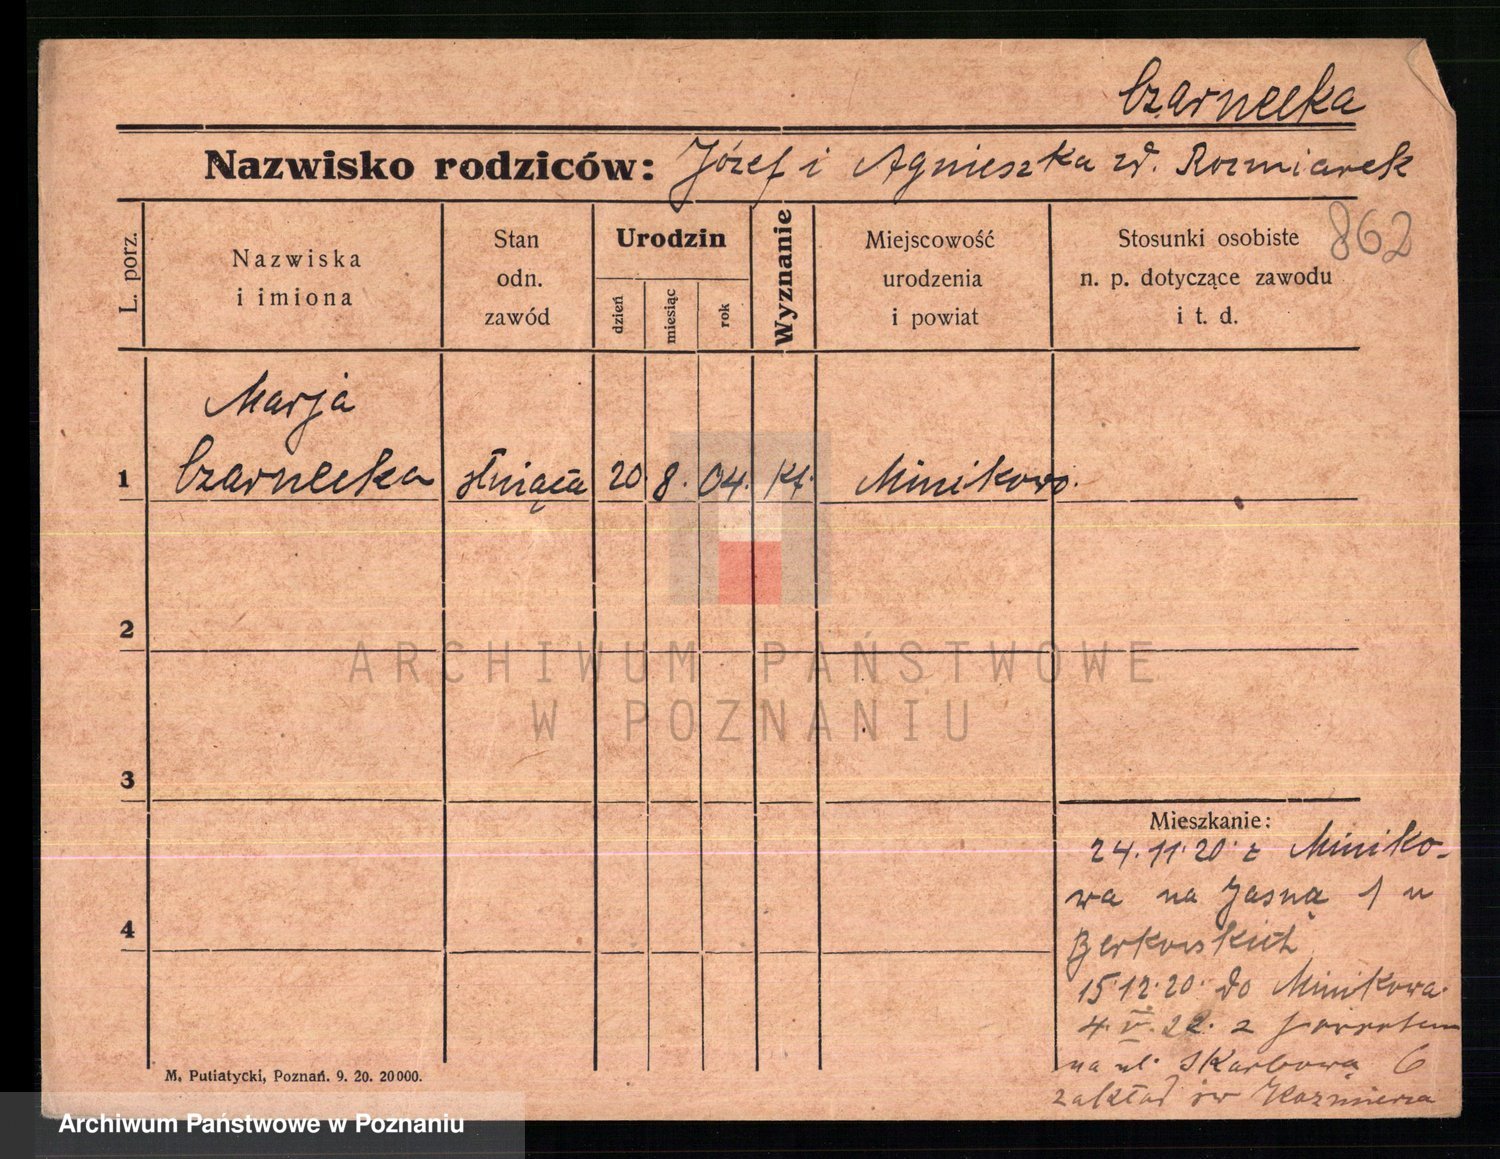 Czarnecka
Nazwisko rodziców: Józef i Agnieszka zd. Rozmiarek
862
L. porz.
Nazwiska
i imiona
Stan
odn.
zawód
Urodzin
dzień
miesiąc
rok
Wyznanie
Miejscowość
urodzenia
i powiat
Stosunki osobiste
n. p. dotyczące zawodu
i t. d.
Marja
1 Czarnecka służąca 20. 8. 04. kt. Minikowo.
2
3
4
Mieszkanie:
24.11.20 z Miniko-
wa na Jasną 1 u
15.12.20. do Minikowa.
4.V.22. z
na ul. Skarbową 6
zakład św Kazimierza
M. Putiatycki, Poznań. 9. 20. 20000.
ARCHIWUM PAŃSTWOWE
W POZNANIU
Archiwum Państwowe w Poznaniu